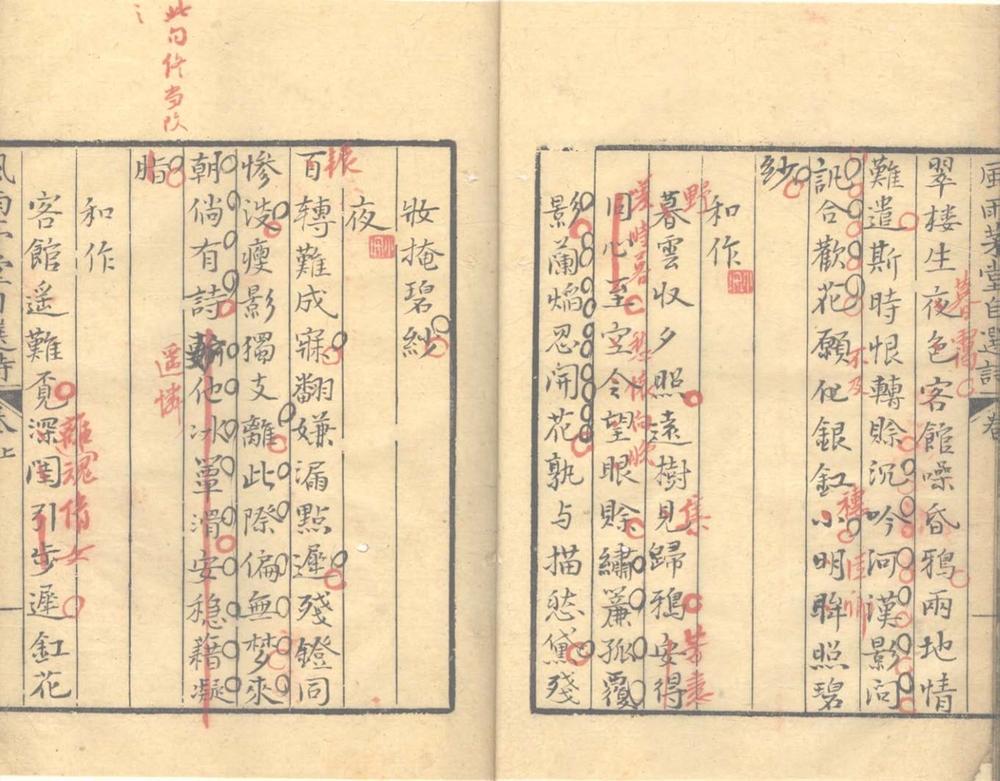 風雨茅堂自選詩 卷
翠楼生夜色客館噪昏鴉兩地情
暮雷
難遣斯時恨轉賒沉吟河漢影問
不及
訊合歡花願化銀釭小明眸照碧
穗
紗
和作
暮雲收夕照遠樹見歸鴉安得
野
集
同心至空令望眼賒繡簾孤覆
影蘭焰忍開花孰与描愁黛殘
妝掩碧紗
夜
百轉難成寐翻嫌漏點遲殘鐙同
慘淡瘦影獨支離此際偏無梦來
朝倘有詩 他冰簟滑安穏藉凝
遥憐
脂
此句作当改
和作
客館遥難覓深閨引步遲釭花
離魂倩女
風雨茅堂自選詩 卷上